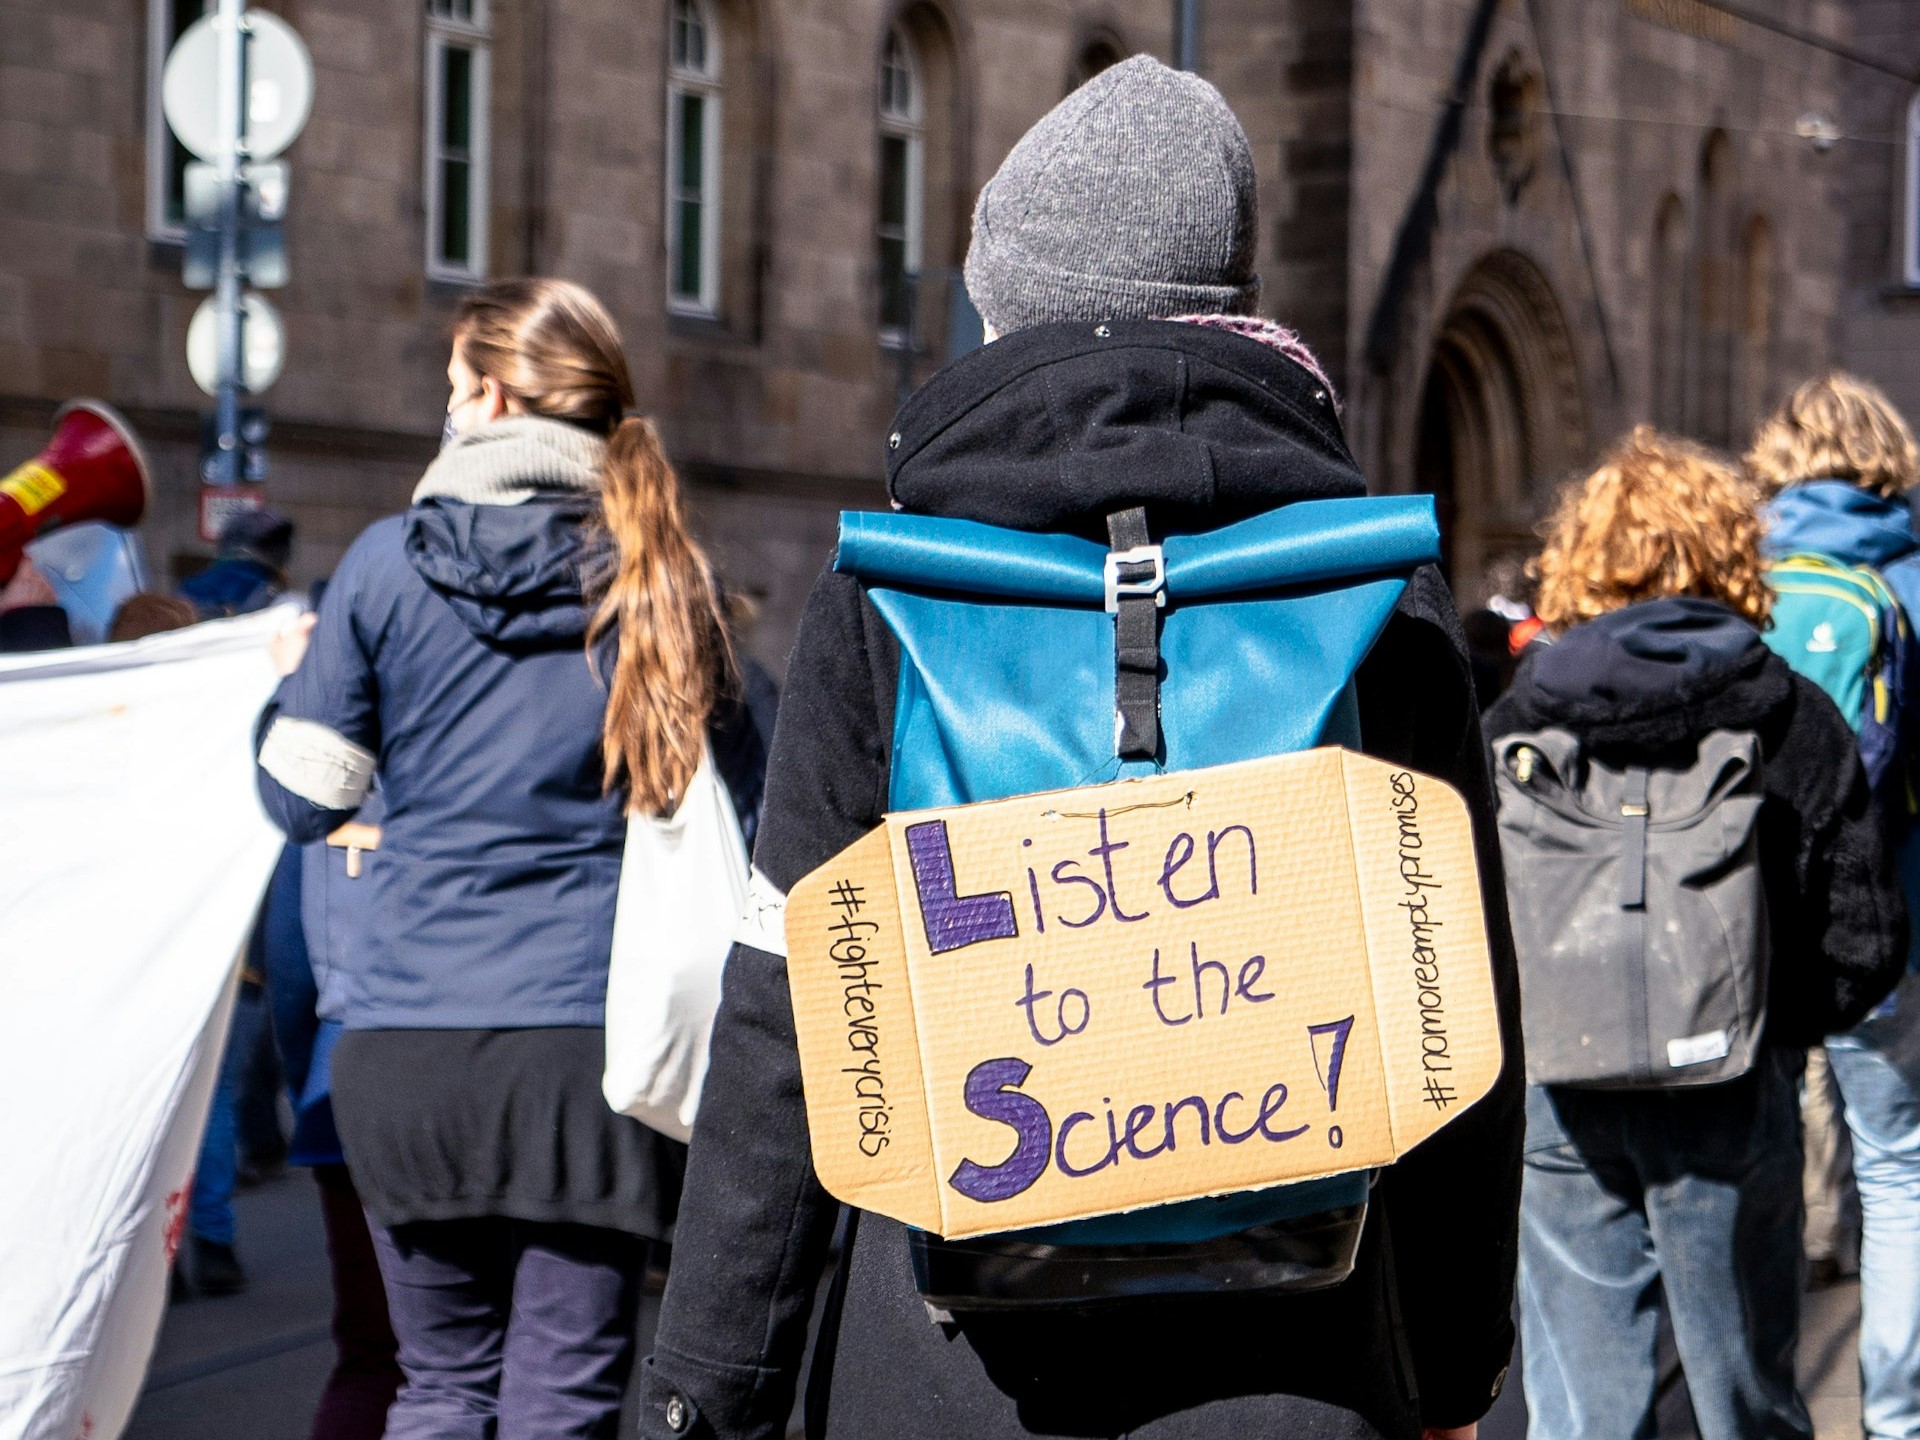 #fighteverycrisis
Listen
to the
Science!
#nomoreemptypromises